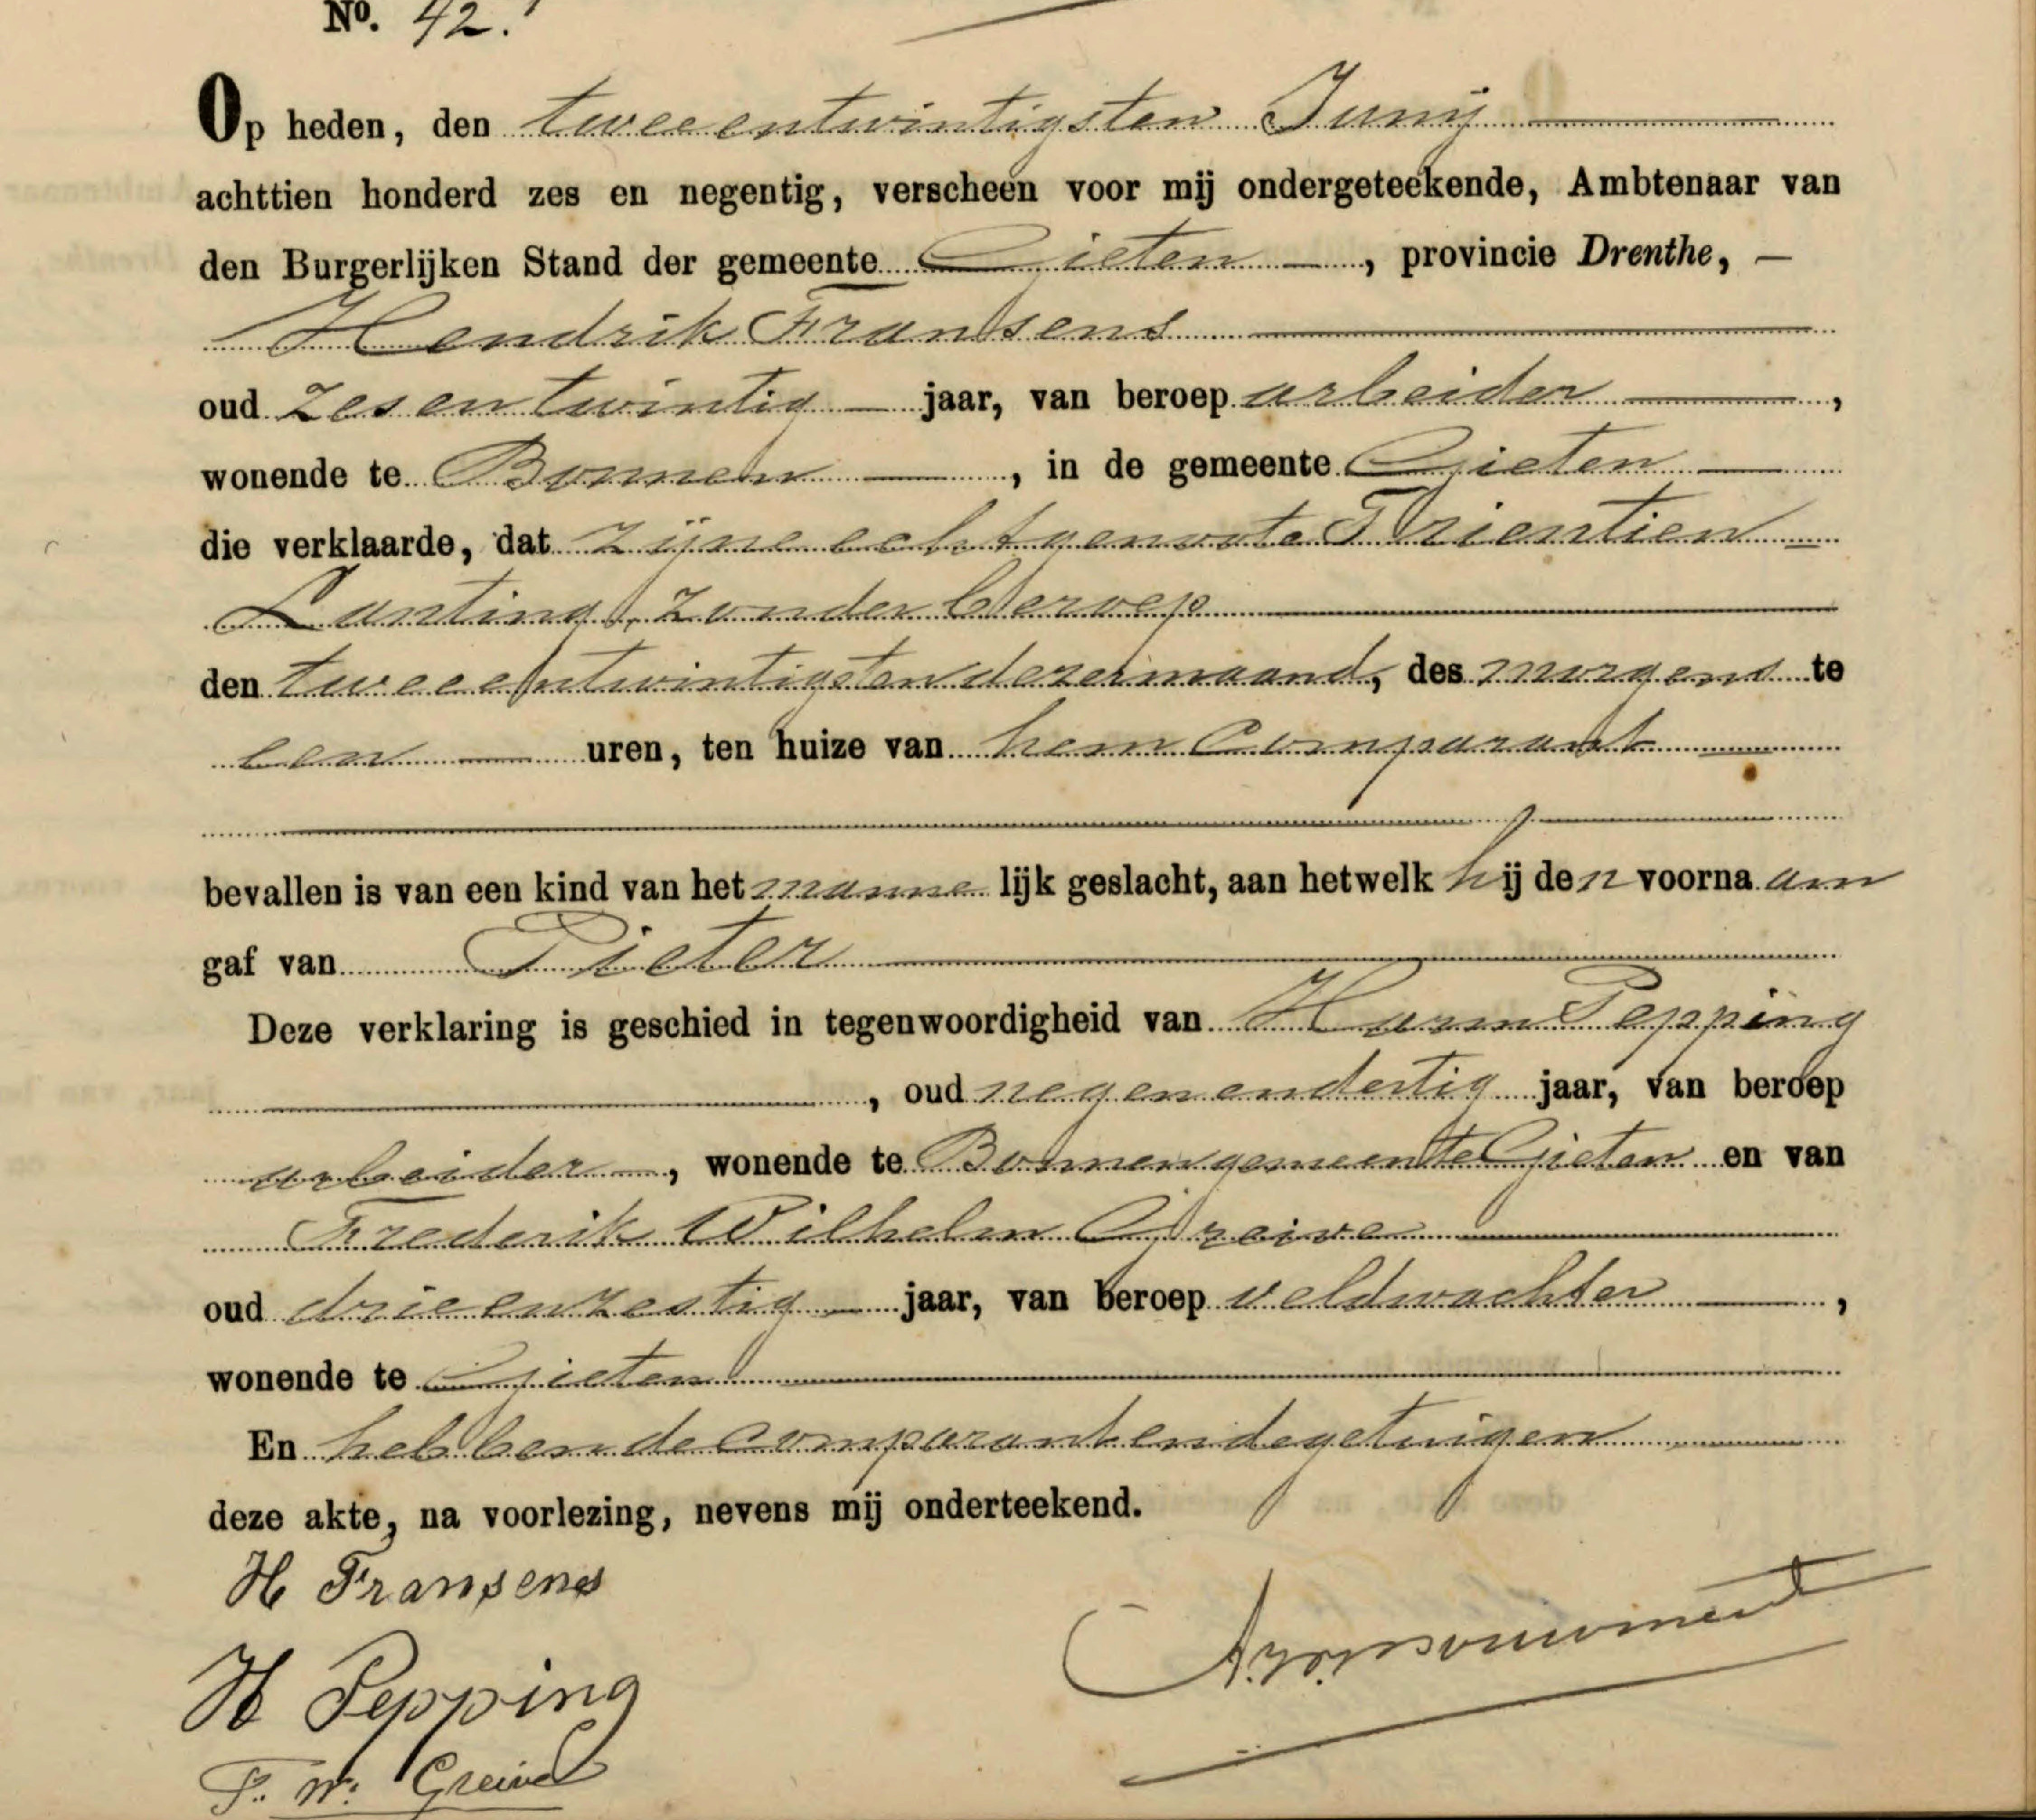 No. 42.
Op heden, den tweeentwintigsten Junij
achttien honderd zes en negentig, verscheen voor mij ondergeteekende, Ambtenaar van
den Burgerlijken Stand der gemeente Gieten, provincie Drenthe,
Hendrik Fransens
oud zesentwintig jaar, van beroep arbeider,
wonende te Bonnen, in de gemeente Gieten
die verklaarde, dat zijne echtgenoote Trientien
Lanting, zonder beroep
den tweeentwintigsten dezer maand, des morgens te
een uren, ten huize van hem Comparant
bevallen is van een kind van het mannelijk geslacht, aan hetwelk hij den voornaam
gaf van Pieter
Deze verklaring is geschied in tegenwoordigheid van Harm Pepping
, oud negenendertig jaar, van beroep
arbeider, wonende te Bonnen gemeente Gieten en van
Frederik Wilhelm Greive
oud drieenzestig jaar, van beroep veldwachter,
wonende te Gieten
En hebben de comparant en de getuigen
deze akte, na voorlezing, nevens mij onderteekend.
H Fransens
H Pepping
F. W. Greive